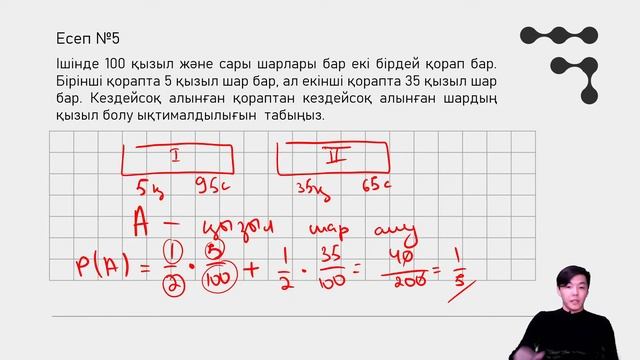 Есеп №5
Ішінде 100 қызыл және сары шарлары бар екі бірдей қорап бар.
Бірінші қорапта 5 қызыл шар бар, ал екінші қорапта 35 қызыл шар
бар. Кездейсоқ алынған қораптан кездейсоқ алынған шардың
қызыл болу ықтималдылығын табыңыз.
I II
5қ 95с 35қ 65с
A – қызыл шар алу
P(A) = 1/2 · 5/100 + 1/2 · 35/100 = 40/200 = 1/5